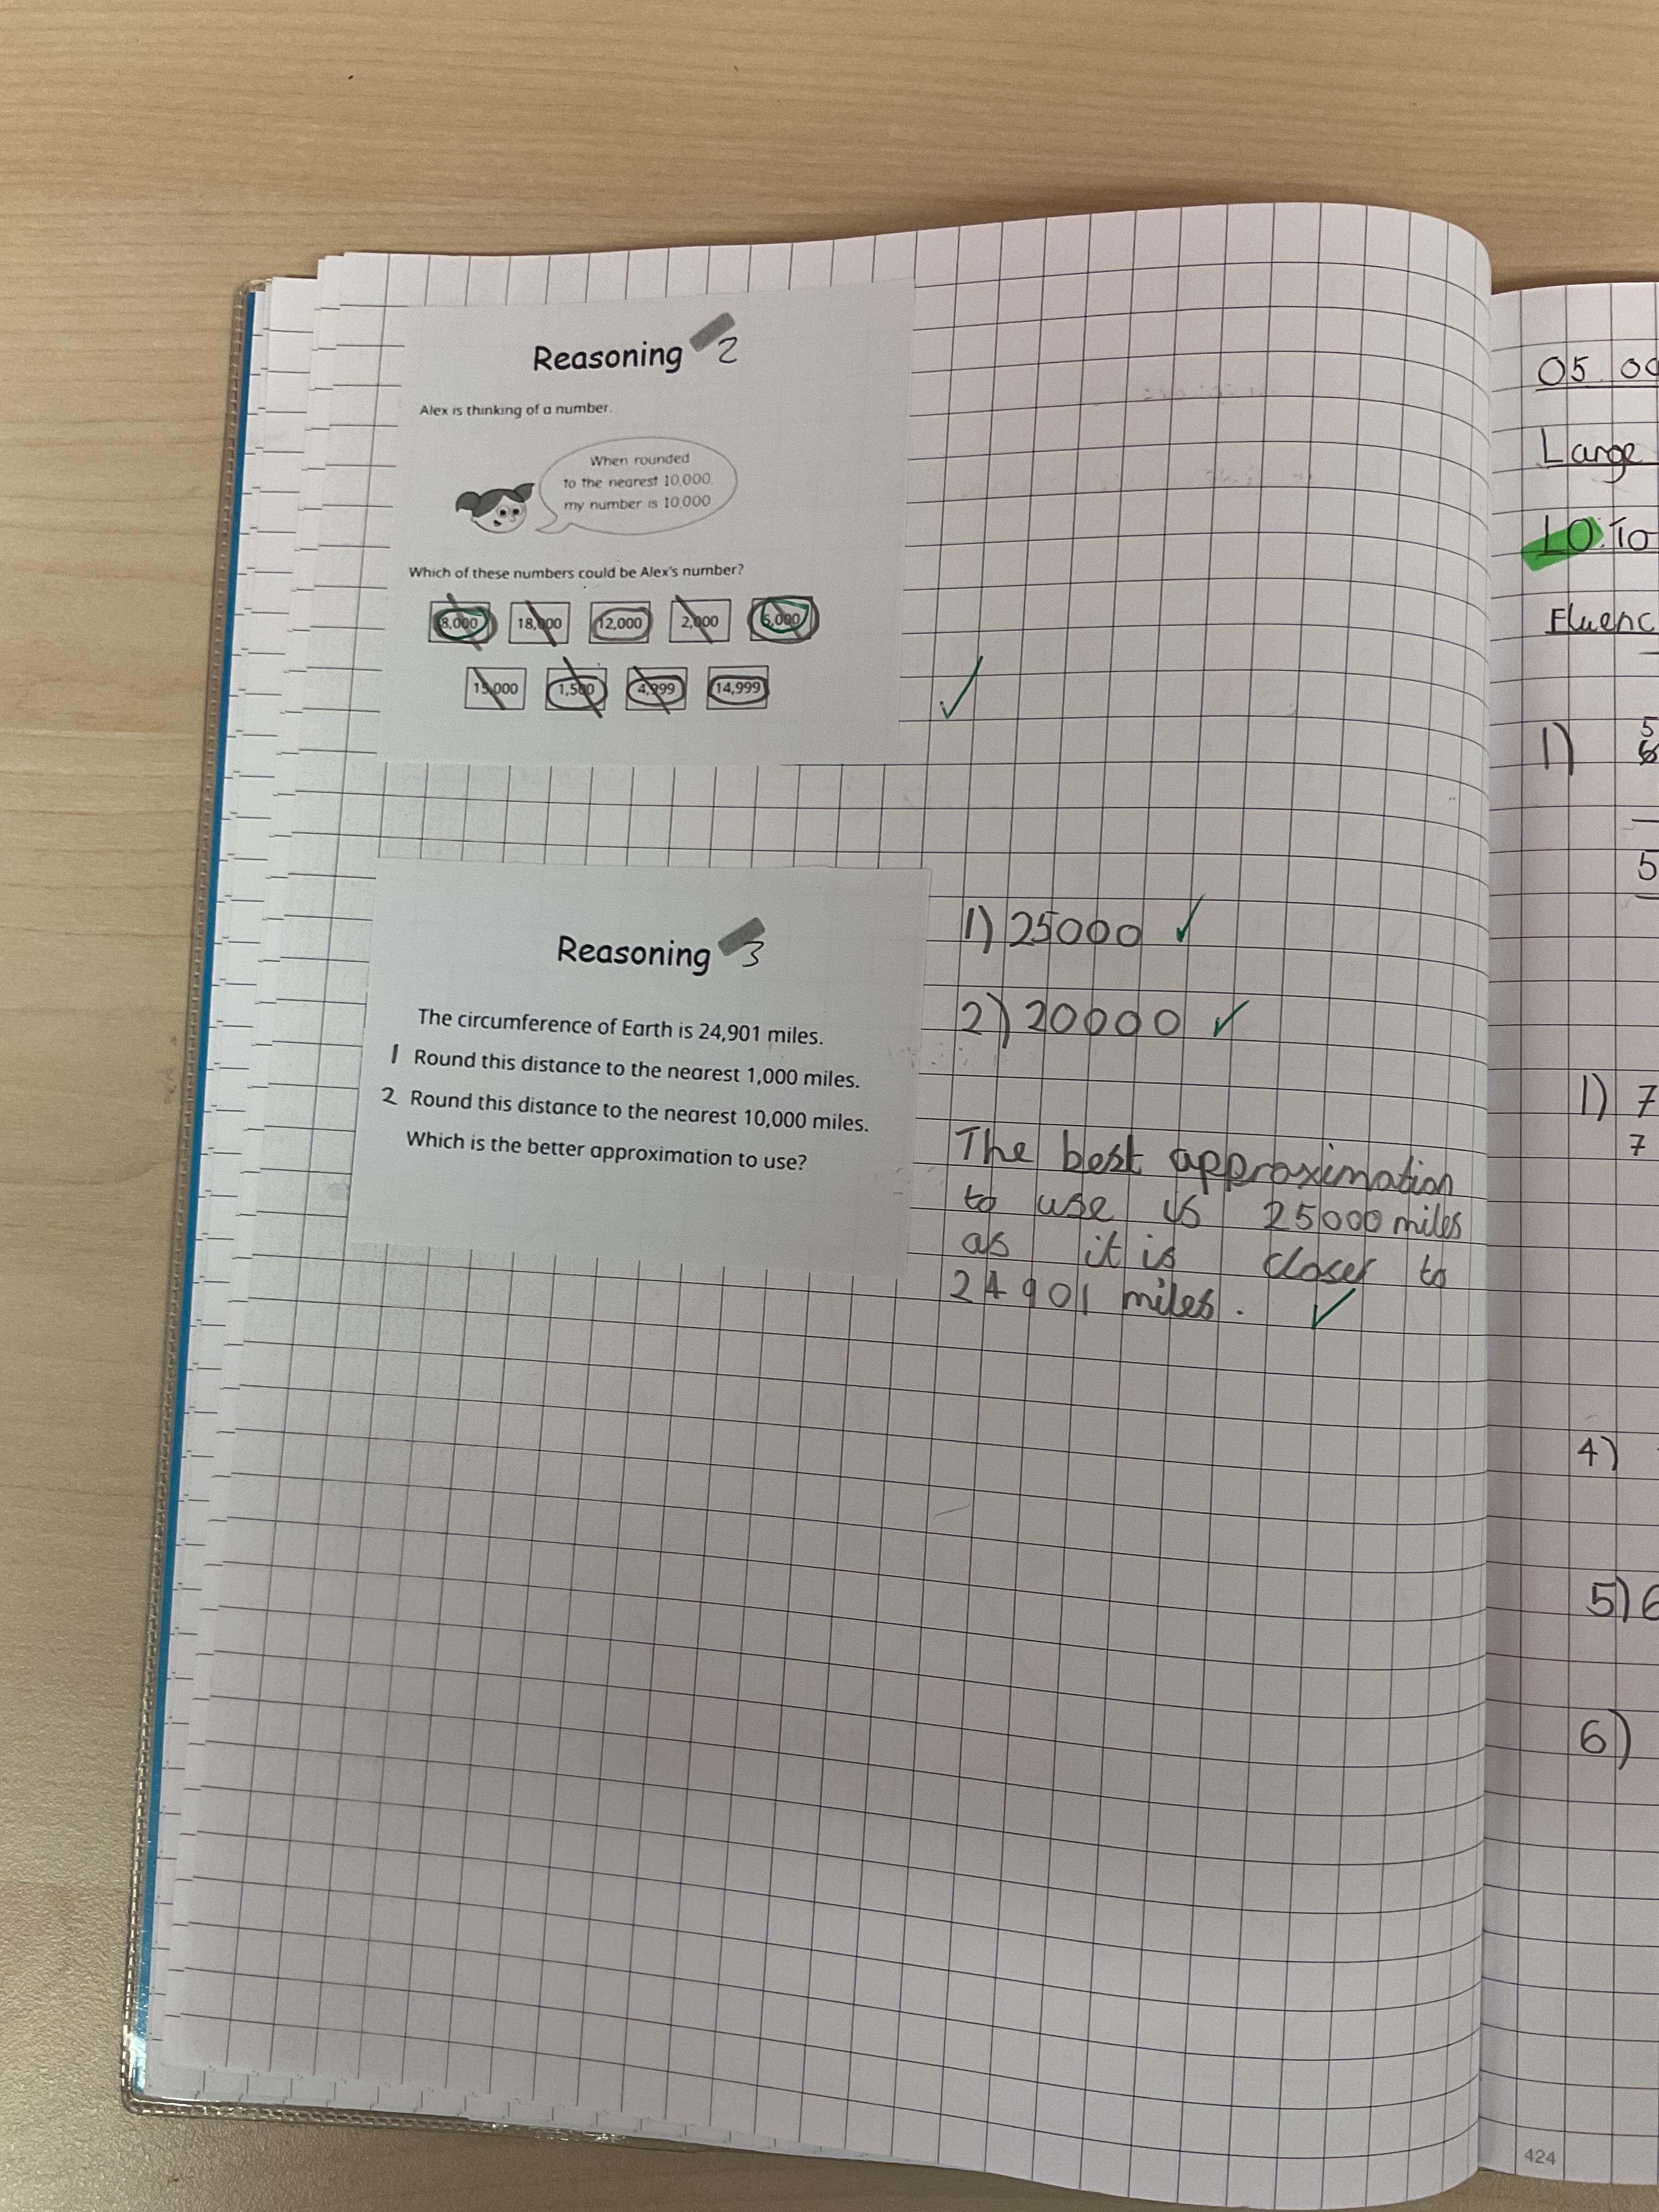 Reasoning 2
Alex is thinking of a number.
When rounded
to the nearest 10,000,
my number is 10,000
Which of these numbers could be Alex's number?
8,000 18,000 12,000 2,000 5,000
15,000 1,500 4,999 14,999
Reasoning 3
The circumference of Earth is 24,901 miles.
1 Round this distance to the nearest 1,000 miles.
2 Round this distance to the nearest 10,000 miles.
Which is the better approximation to use?
1) 25000
2) 20000
The best approximation
to use is 25000 miles
as it is closer to
24901 miles.
05.
Large
LO: To
Fluenc
1) 5
6
5
1) 7
7
4)
5) 6
6)
424